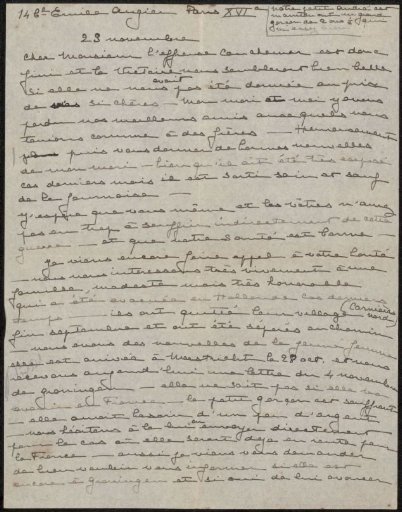 14 Bd Emile Augier Paris XVI
notre petit André est
maintenant un grand
garçon de 2 ans &
23 novembre
Cher Monsieur l'affreux cauchemar est donc
fini et la victoire nous semblerait bien belle
si elle ne nous avait pas été donnée au prix
de si chères — Mon mari et moi y avons
perdu nos meilleurs amis auxquels nous
tenions comme à des frères — Heureusement
je puis vous donner de bonnes nouvelles
de mon mari — bien qu'il ait été très exposé
ces derniers mois il est sorti sain et sauf
de la fournaise —
J'espère que vous même et les vôtres n'avez
pas eu trop à souffrir indirectement de cette
guerre — et que votre santé est bonne
Je viens encore faire appel à votre bonté
— nous nous intéressons très vivement à une
famille, modeste mais très honorable
qui a été évacuée en Hollande ces derniers
— ils ont quitté leur village (Carnières
nord)
fin septembre et ont été séparés en chemin
— nous avons des nouvelles de la jeune femme
est arrivée à Maestricht le 28 oct. et nous
recevons aujourd'hui une lettre du 4 novembre
de Groningen — elle ne sait pas si elle va
en France — le petit garçon est souffrant
— elle aurait besoin d'un peu d'argent
— nous hésitons à le lui envoyer directement
pour le cas où elle serait déjà en route pour
la France — aussi je viens vous demander
de bien vouloir vous informer si elle est
encore à Groningen et si oui de lui avancer